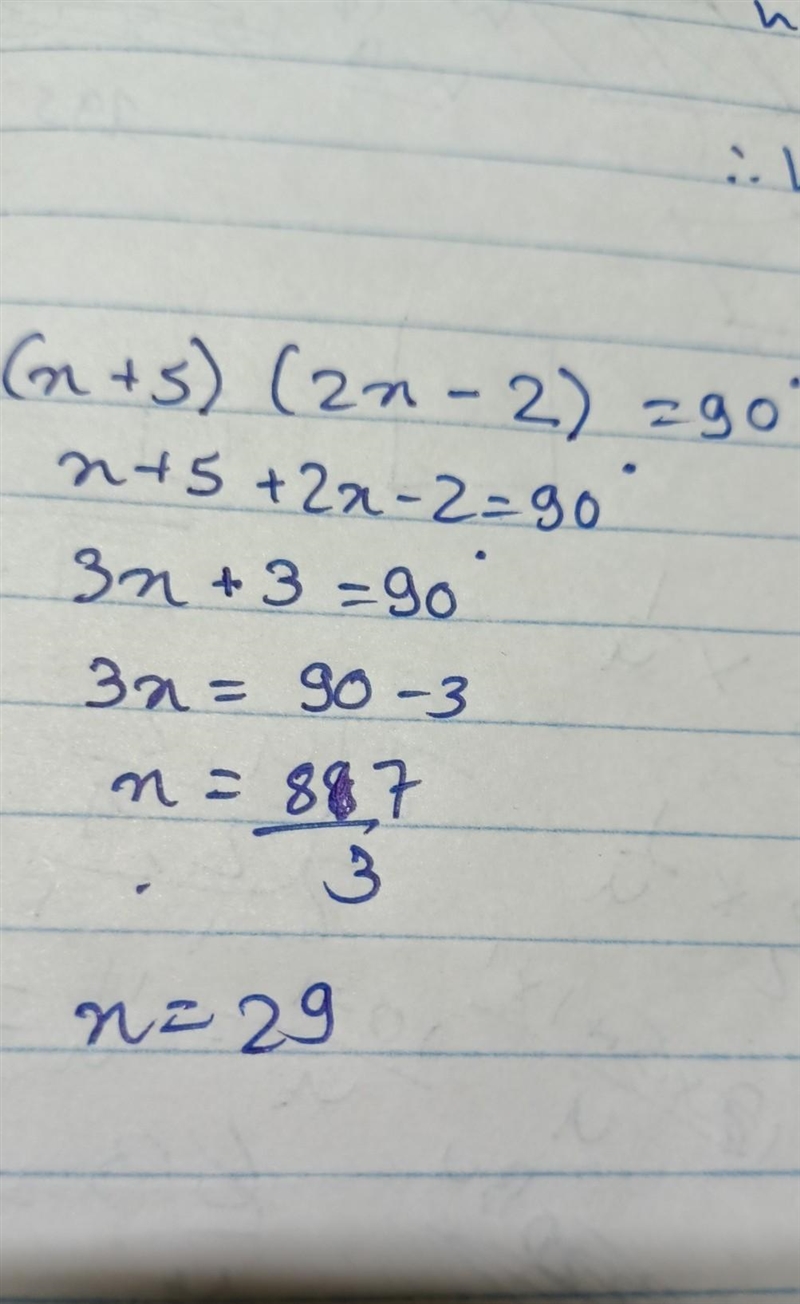 ∴
(x + 5) (2x - 2) = 90°
x + 5 + 2x - 2 = 90°
3x + 3 = 90°
3x = 90 - 3
x = 87
3
x = 29